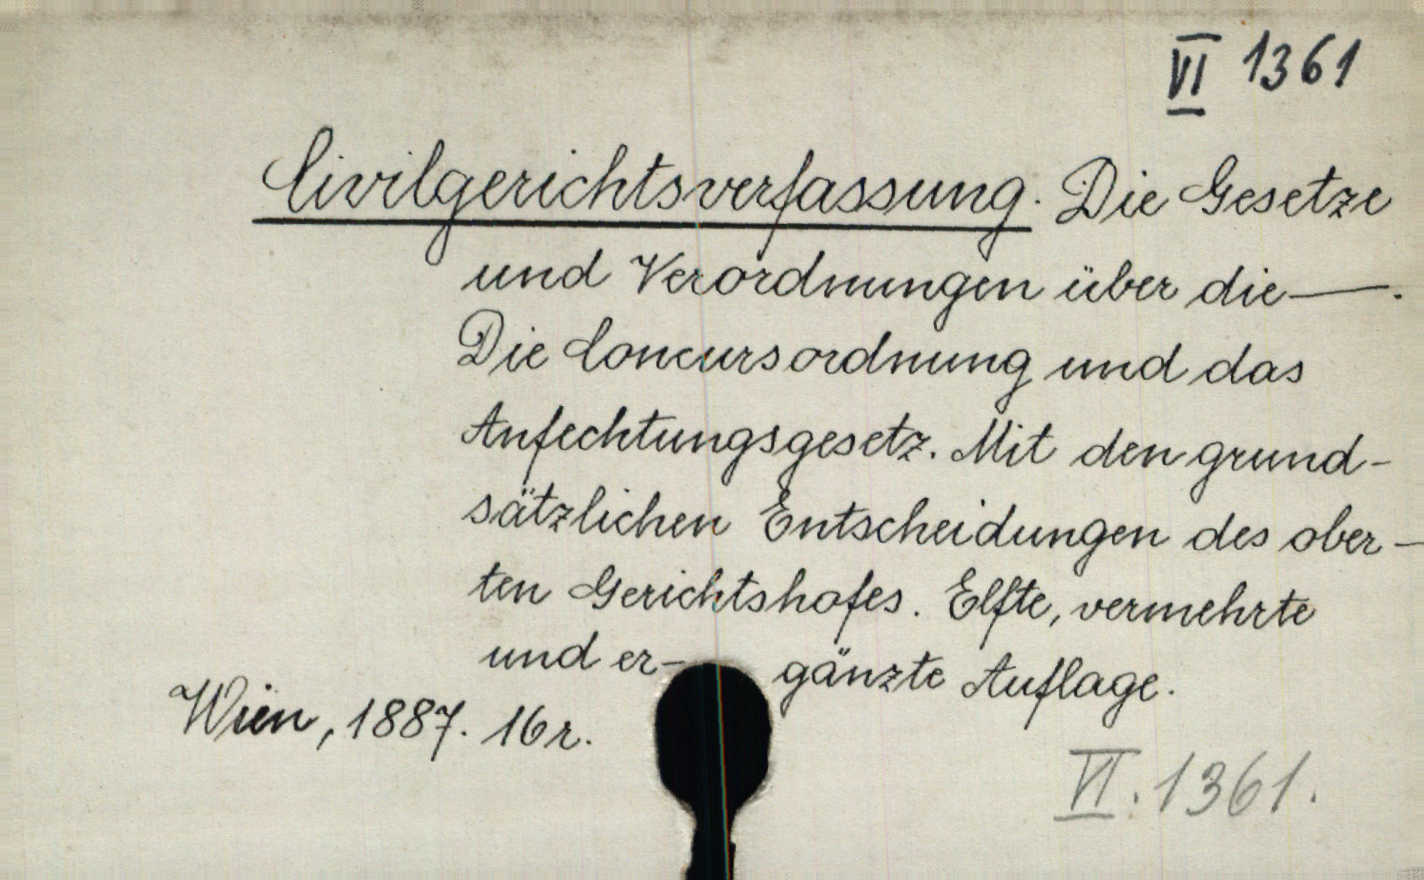 VI 1361
Civilgerichtsverfassung. Die Gesetze
und Verordnungen über die —.
Die Concursordnung und das
Anfechtungsgesetz. Mit den grund-
sätzlichen Entscheidungen des ober-
ten Gerichtshofes. Elfte, vermehrte
und er- gänzte Auflage.
Wien, 1887. 16r.
VI. 1361.